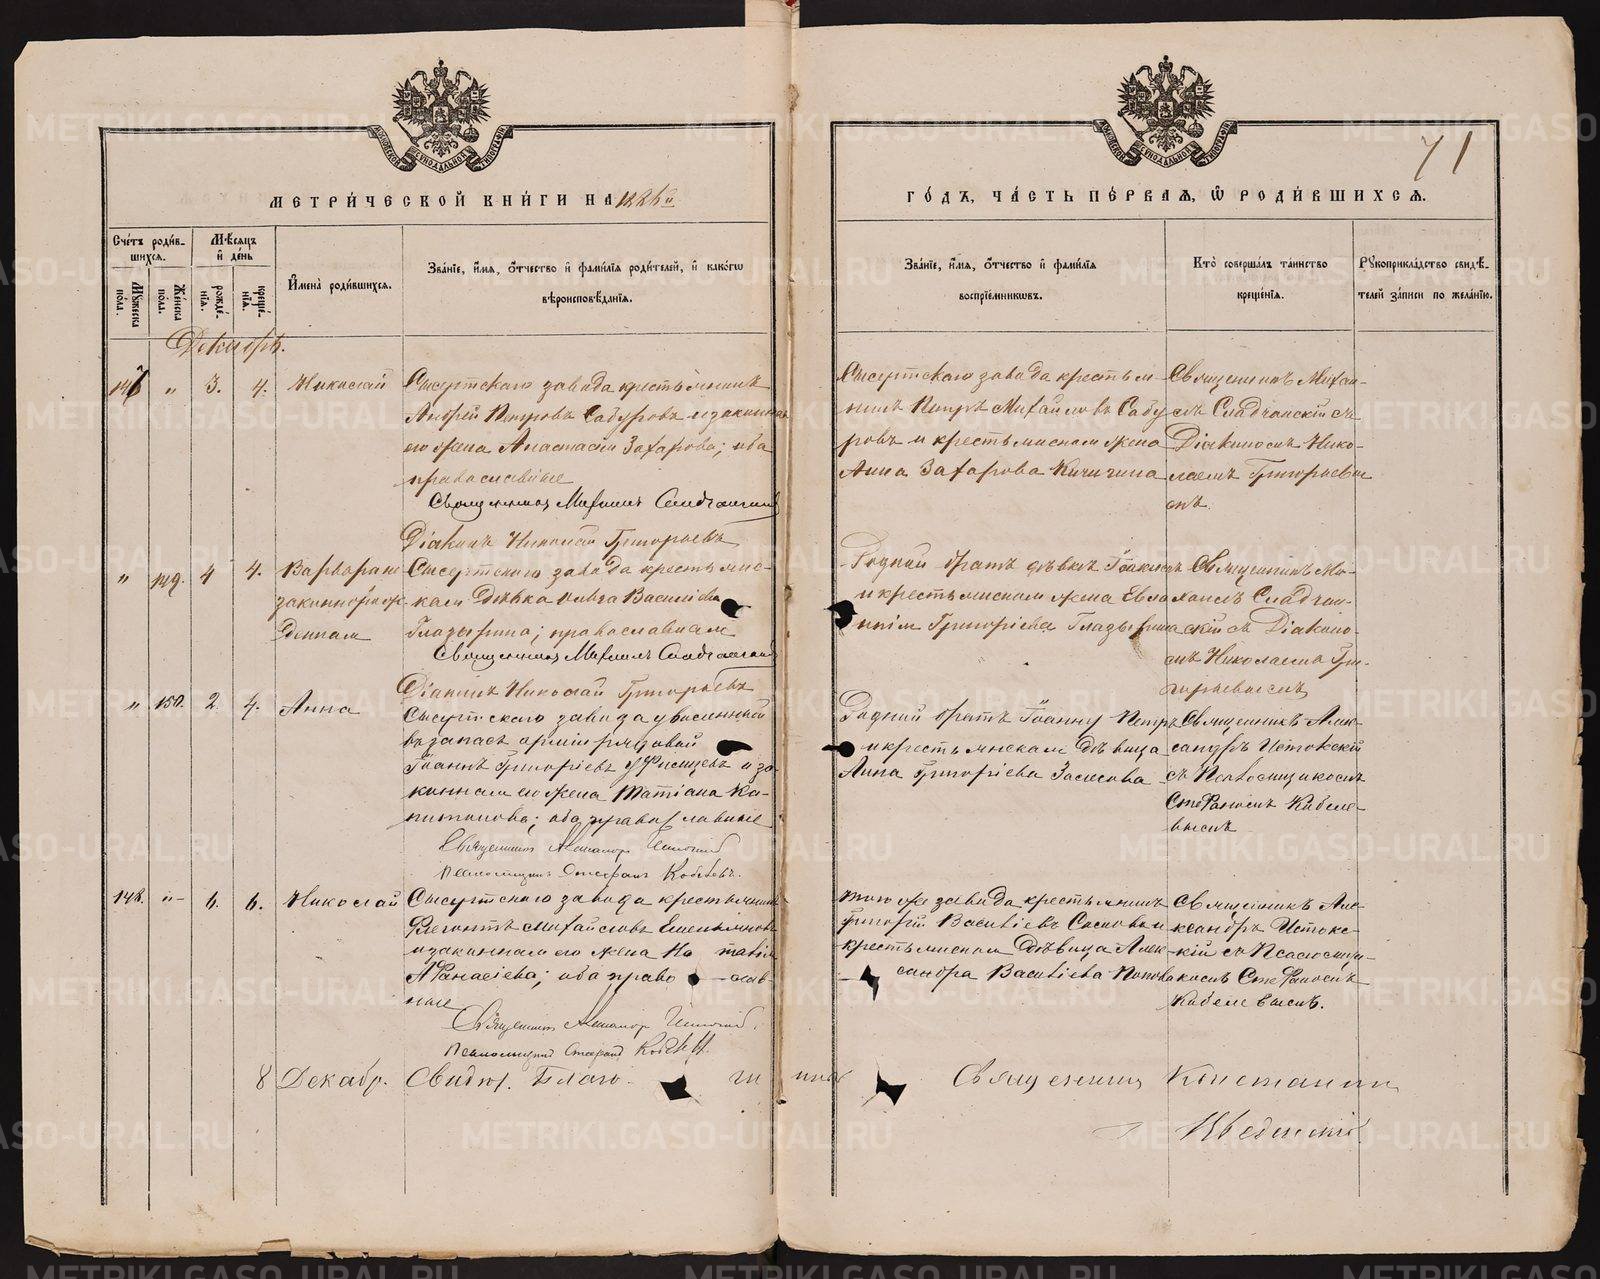 МЕТРИ́ЧЕСКОЙ КНИ́ГИ НА 1886 й
ГО́ДЪ, ЧА́СТЬ ПЕ́РВАЯ, Ѡ РОДИ́ВШИХСЯ.
71
Сче́тъ роди́в-
шихся.
Мѣ́сяцъ
и де́нь
Му́жеска
пола.
Же́нска
пола.
рожде́-
нїя.
креще́-
нїя.
И́мена̀ роди́вшихся.
Зва́нїе, и́мя, о́тчество и фами́лїя роди́телей, и како́гѡ
вѣроисповѣ́данїя.
Зва́нїе, и́мя, о́тчество и фами́лїя
воспрїе́мникѡвъ.
Кто̀ соверша́лъ та́инство
креще́нїя.
Рꙋкоприкла́дство свидѣ́-
телей за́писи по жела́нїю.
Декабрь.
147 " 3. 4. Николай
Сысертскаго завода крестьянинъ
Андрей Петровъ Сабуровъ и законная
его жена Анастасія Захарова; оба
православные
Священникъ Михаилъ Сладчанскій
Діаконъ Николай Григорьевъ
Сысертскаго завода крестья-
нинъ Петръ Михайловъ Сабу-
ровъ и крестьянская жена
Анна Захарова Кичигина
Священникъ Михаи-
лъ Сладчанскій съ
Діакономъ Нико-
лаемъ Григорьевы-
мъ.
" 149. 4 4. Варвара не
законнорож-
денная
Сысертскаго завода крестьянс-
кая дѣвка Ольга Васильева
Гладырина; православная
Священникъ Михаилъ Сладчанскій
Діаконъ Николай Григорьевъ
Родной братъ дѣвки
и крестьянская жена Евла
Григоріева
Священникъ Ми-
хаилъ Сладчан-
скій съ Діаконо-
мъ Николаемъ Гри-
горьевымъ
" 150. 2. 4. Анна
Сысертскаго завода уволенный
въ запасъ арміи рядовой
Іоаннъ Григоріевъ и за-
конная его жена Татіана Ка-
питонова; оба православные
Священникъ Александръ Истокскій
Псаломщикъ Стефанъ Кобелевъ.
Родной братъ Іоанну Петръ
и крестьянская дѣвица
Анна Григоріева Засыпова
Священникъ Алек-
сандръ Истокскій
съ Псаломщикомъ
Стефаномъ Кобеле-
вымъ
148. " 6. 6. Николай
Сысертскаго завода крестьянинъ
Флегонтъ Михайловъ Емельяновъ
и законная его жена На талія
Афанасіева; оба право слав-
ные
Священникъ Александръ Истокскій.
Псаломщикъ Стефанъ Кобелевъ.
того же завода крестьянинъ
Григорій Васильевъ
крестьянская дѣвица Алек-
сандра Васильева Попова
Священникъ Але-
ксандръ Истокс-
кій съ Псаломщи-
комъ Стефаномъ
Кобелевымъ.
8 Декабр. Свидѣт. Благо чинный Священникъ Константинъ
Введенскій
METRIKI.GASO-URAL.RU